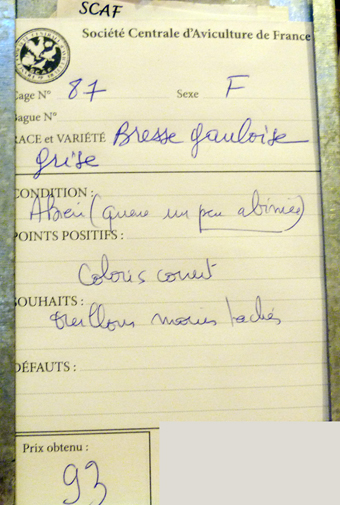 SCAF
Société Centrale d'Aviculture de France
Cage N° 87 Sexe F
Bague N°
RACE et VARIÉTÉ Bresse gauloise
grise
CONDITION :
(queue un peu abimée)
POINTS POSITIFS :
Coloris correct
SOUHAITS :
oreillons moins tachés
DÉFAUTS :
Prix obtenu :
93